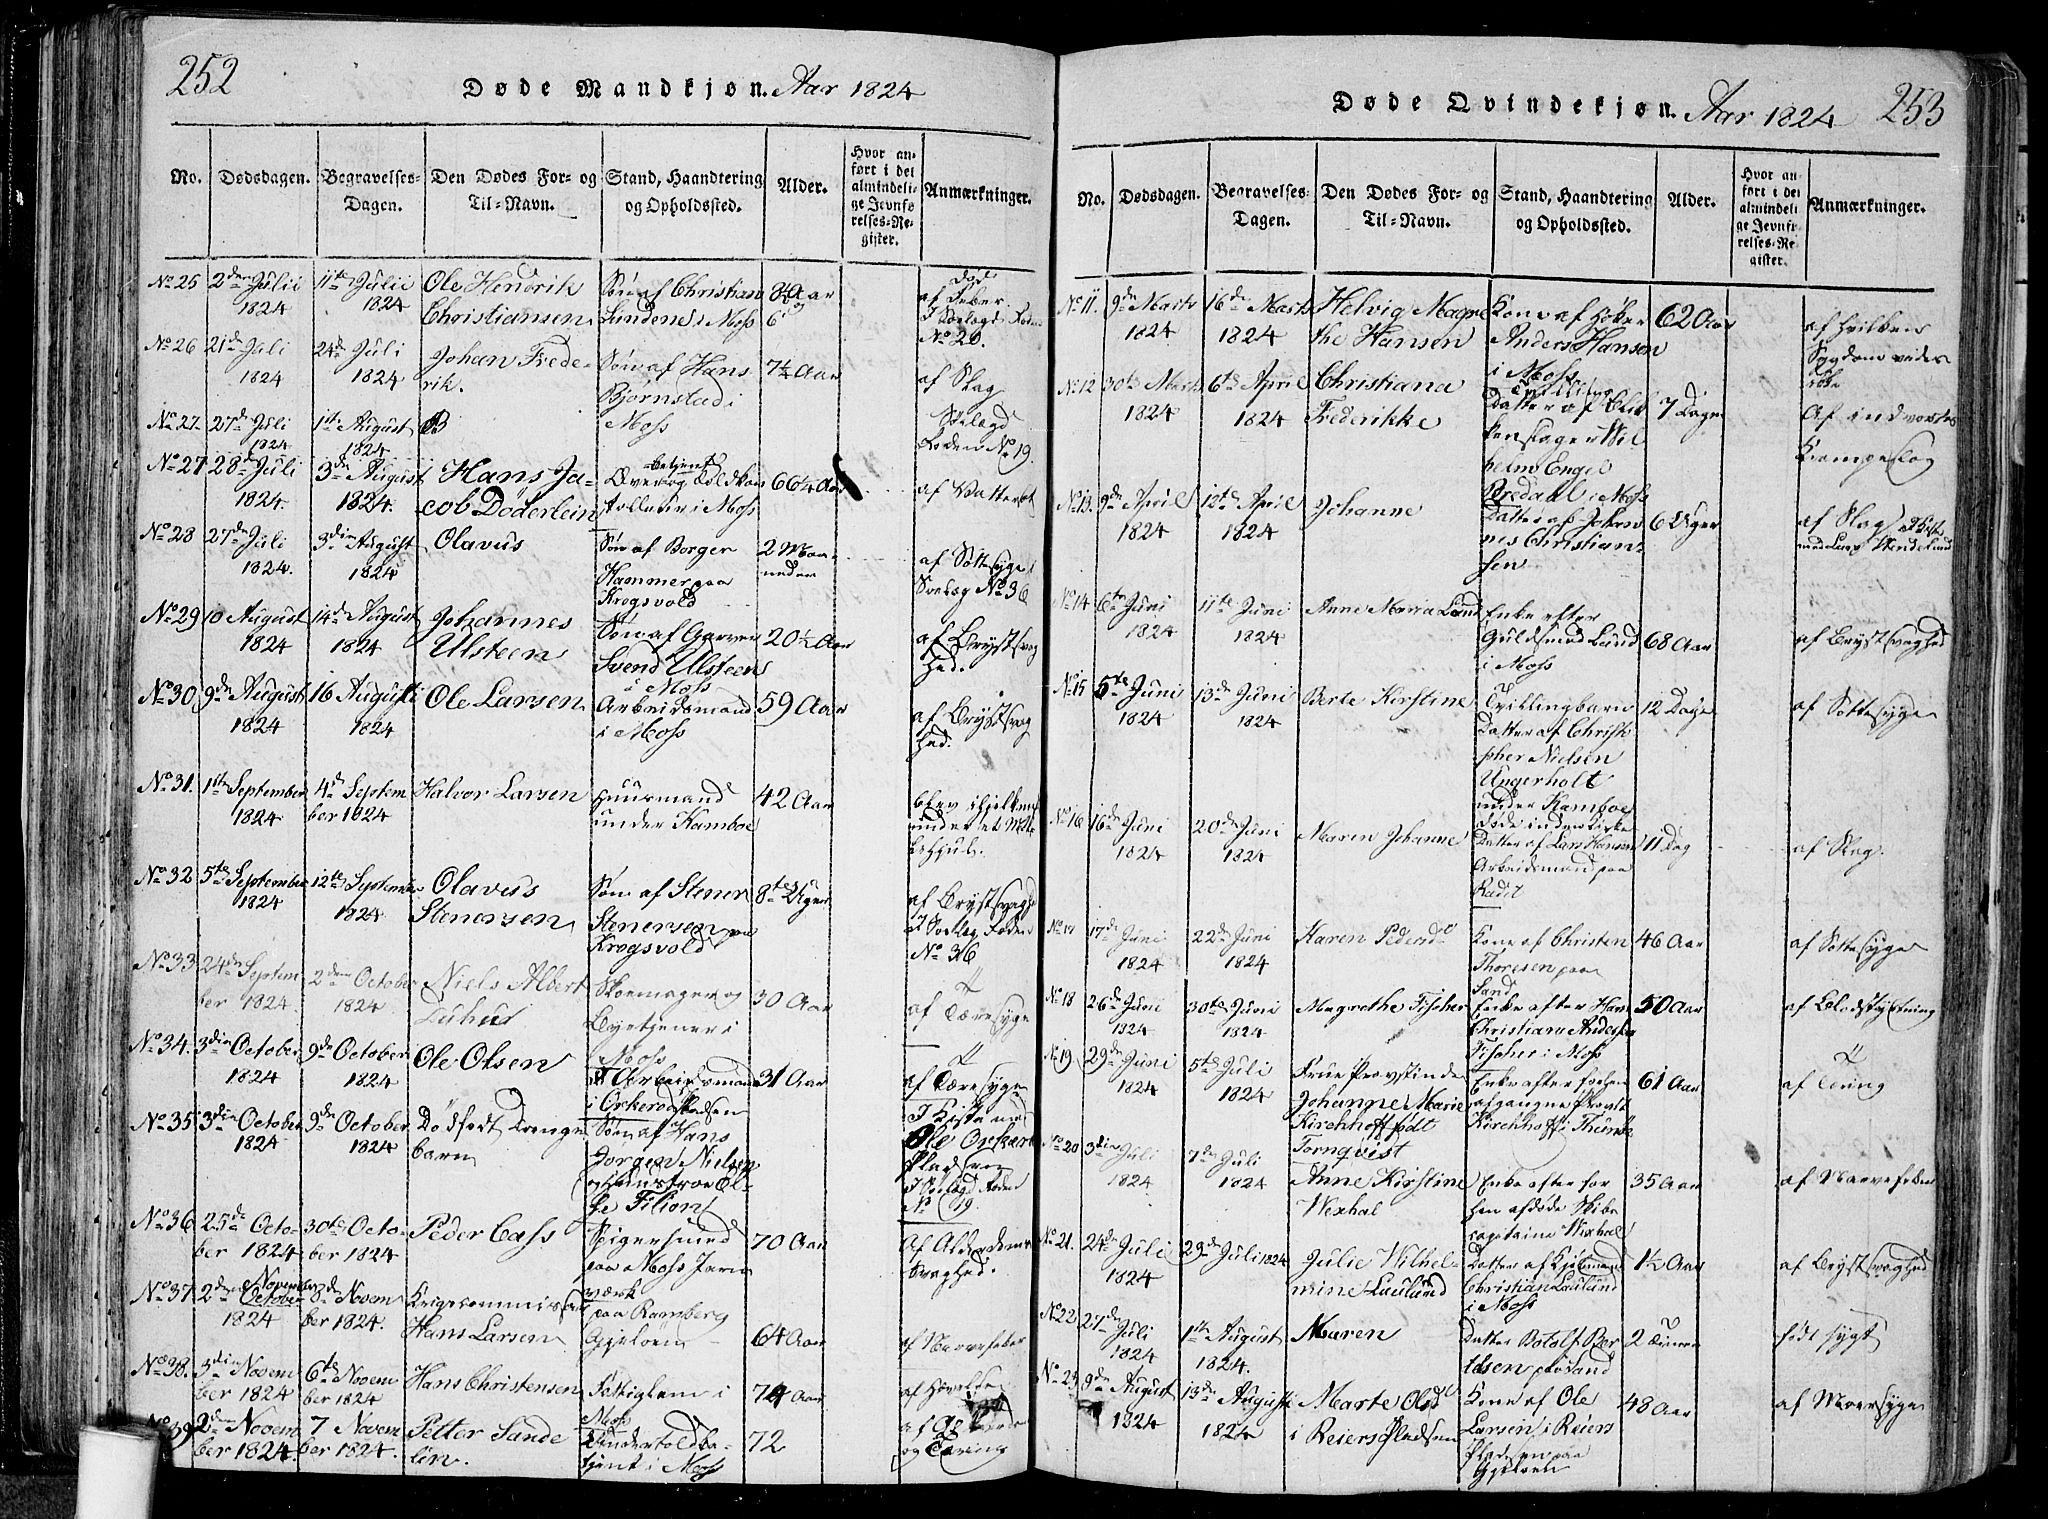 252
Døde Mandkjøn. Aar 1824
No.
Dødsdagen.
Begravelses-
Dagen.
Den Dødes For- og
Til-Navn.
Stand, Haandtering
og Opholdssted.
Alder.
Hvor an-
ført i det
almindeli-
ge Jevnfø-
relses-Re-
gister.
Anmærkninger.
No 25 2den Julii 1824 11te Julii 1824 Ole Hendrik Christiansen Søn af Christian Lunden i Moss
No 26 21de Juli 1824 24de Juli 1824 Johan Frederik. Søn af Hans Bjørnstad i Moss 7½ Aar af Slag
No 27 27de Juli 1824 1ste August 1824
No 27 28de Juli 1824 3die August 1824 Hans Jacob Døderlein Overtoldbetjent i Moss 66¼ Aar
No 28 27de Juli 1824. 3die August 1824 Olavus Søn af Borger Hammer paa Krogsvold 2 Maaneder af Sottesyge No 36
No 29 10 August 1824 14de August 1824 Johannes Ulsteen Søn af Garver Svend Ulsteen i Moss 20½ Aar af Brystsvaghed.
No 30 9de August 1824 16 August 1824 Ole Larsen Arbeidsmand i Moss 59 Aar af Brystsvaghed.
No 31. 1ste September 1824 4de September 1824 Halvor Larsen Huusmand under Kamboe 42 Aar
No 32 5te September 1824 12te September 1824 Olavus Stenersen Søn af Stener Stenersen paa Krogsvold 8te Uger af Brystsvaghed No 36
No 33 24de September 1824 2den October 1824 Niels Albert Skoemager og Byetjener i Moss 30 Aar af Tæresyge
No 34. 3die October 1824 9de October 1824 Ole Olsen Arbeidsmand i Orkerødpladsen 31 Aar af Tæresyge
No 35 3die October 1824 9de October 1824 Dødfødt Drengebarn Søn af Hans Jørgen Nielsen og Hustroe Else Filion No 19.
No 36 25de October 1824 30te October 1824 Peder Cass Spigersmed paa Moss Jernværk 70 Aar af Alderdoms Svaghed.
No 37 2den November 1824 8de November 1824. Krigscommissær Hans Larsen paa Ramberg Gjeløen 64 Aar af Nervefeber
No 38. 3die November 1824 6te November 1824 Hans Christensen Fattiglem i Moss 74 Aar
No 39 2den November 1824. 7 November 1824. Petter Sandelin. Undertoldbetjent i Moss 72 og Tæring
Døde Qvindekjøn. Aar 1824
253
No.
Dødsdagen.
Begravelses-
Dagen.
Den Dødes For- og
Til-Navn.
Stand, Haandtering
og Opholdssted.
Alder.
Hvor an-
ført i det
almindeli-
ge Jevnfø-
relses-Re-
gister.
Anmærkninger.
No 11. 9de Marts 1824 16de Marts 1824 Helvig Magrethe Hansen Kone af Høker Anders Hansen i Moss 62 Aar
No 12 30te Marts 1824 6te April 1824 Christiana Frederikke Tvilling Datter af Blikkenslager Wilhelm Engel Bredahl i Moss 7 Dage
No 13. 9de April 1824 12te April 1824 Johanne Datter af Johannes Christiansen 6 Uger af Slag
No 14 6te Juni 1824 11te Juni 1824 Anne Maria Lund Enke efter Guldsmed Lund i Moss 68 Aar af Brystsvaghed
No 15 5te Juni 1824 13de Juni 1824 Berte Kirstine Tvillingbarn Datter af Christopher Nielsen Ungerholt under Kamboe 12 Dage af Sottesyge
No 16 16de Juni 1824 20de Juni 1824 Maren Johanne Datter af Lars Hansen Arbeidsmand paa 11 Dag af Slag.
No 17 17de Juni 1824 22de Juni 1824 Karen Pedersd Kone af Christen Thoresen paa Sand 46 Aar af Sottesyge
No 18 26de Juni 1824 30te Juni 1824 Magrethe Fischer Enke efter Hans Christian Andersen Fischer i Moss 50 Aar af Blodstyrtning
No 19 29de Juni 1824 5te Juli 1824 Frue Provstinde Johanne Marie Kirchhoff født Tornqvist Enke efter forhen afgangne Provst Kirchhoff 61 Aar af Tæring
No 20 3die Juli 1824 7de Juli 1824 Anne Kirstine Wexhal Enke efter forhen afdøde Skibscapitaine Wexhal 35 Aar af Nervefeber
No 21. 24de Juli 1824 29de Juli 1824 Julie Wilhelmine Laulund Datter af Christian Laulund i Moss 1½ Aar af Brystsvaghed
No 22 27de Juli 1824 1ste August 1824. Maren Datter Botolf Bertelsen 2 Timer født sygt
No 23 9de August 1824 13de August 1824 Marte Olsd i Reierspladsen Kone af Ole Larsen i Reierspladsen paa Gjeløen 48 Aar